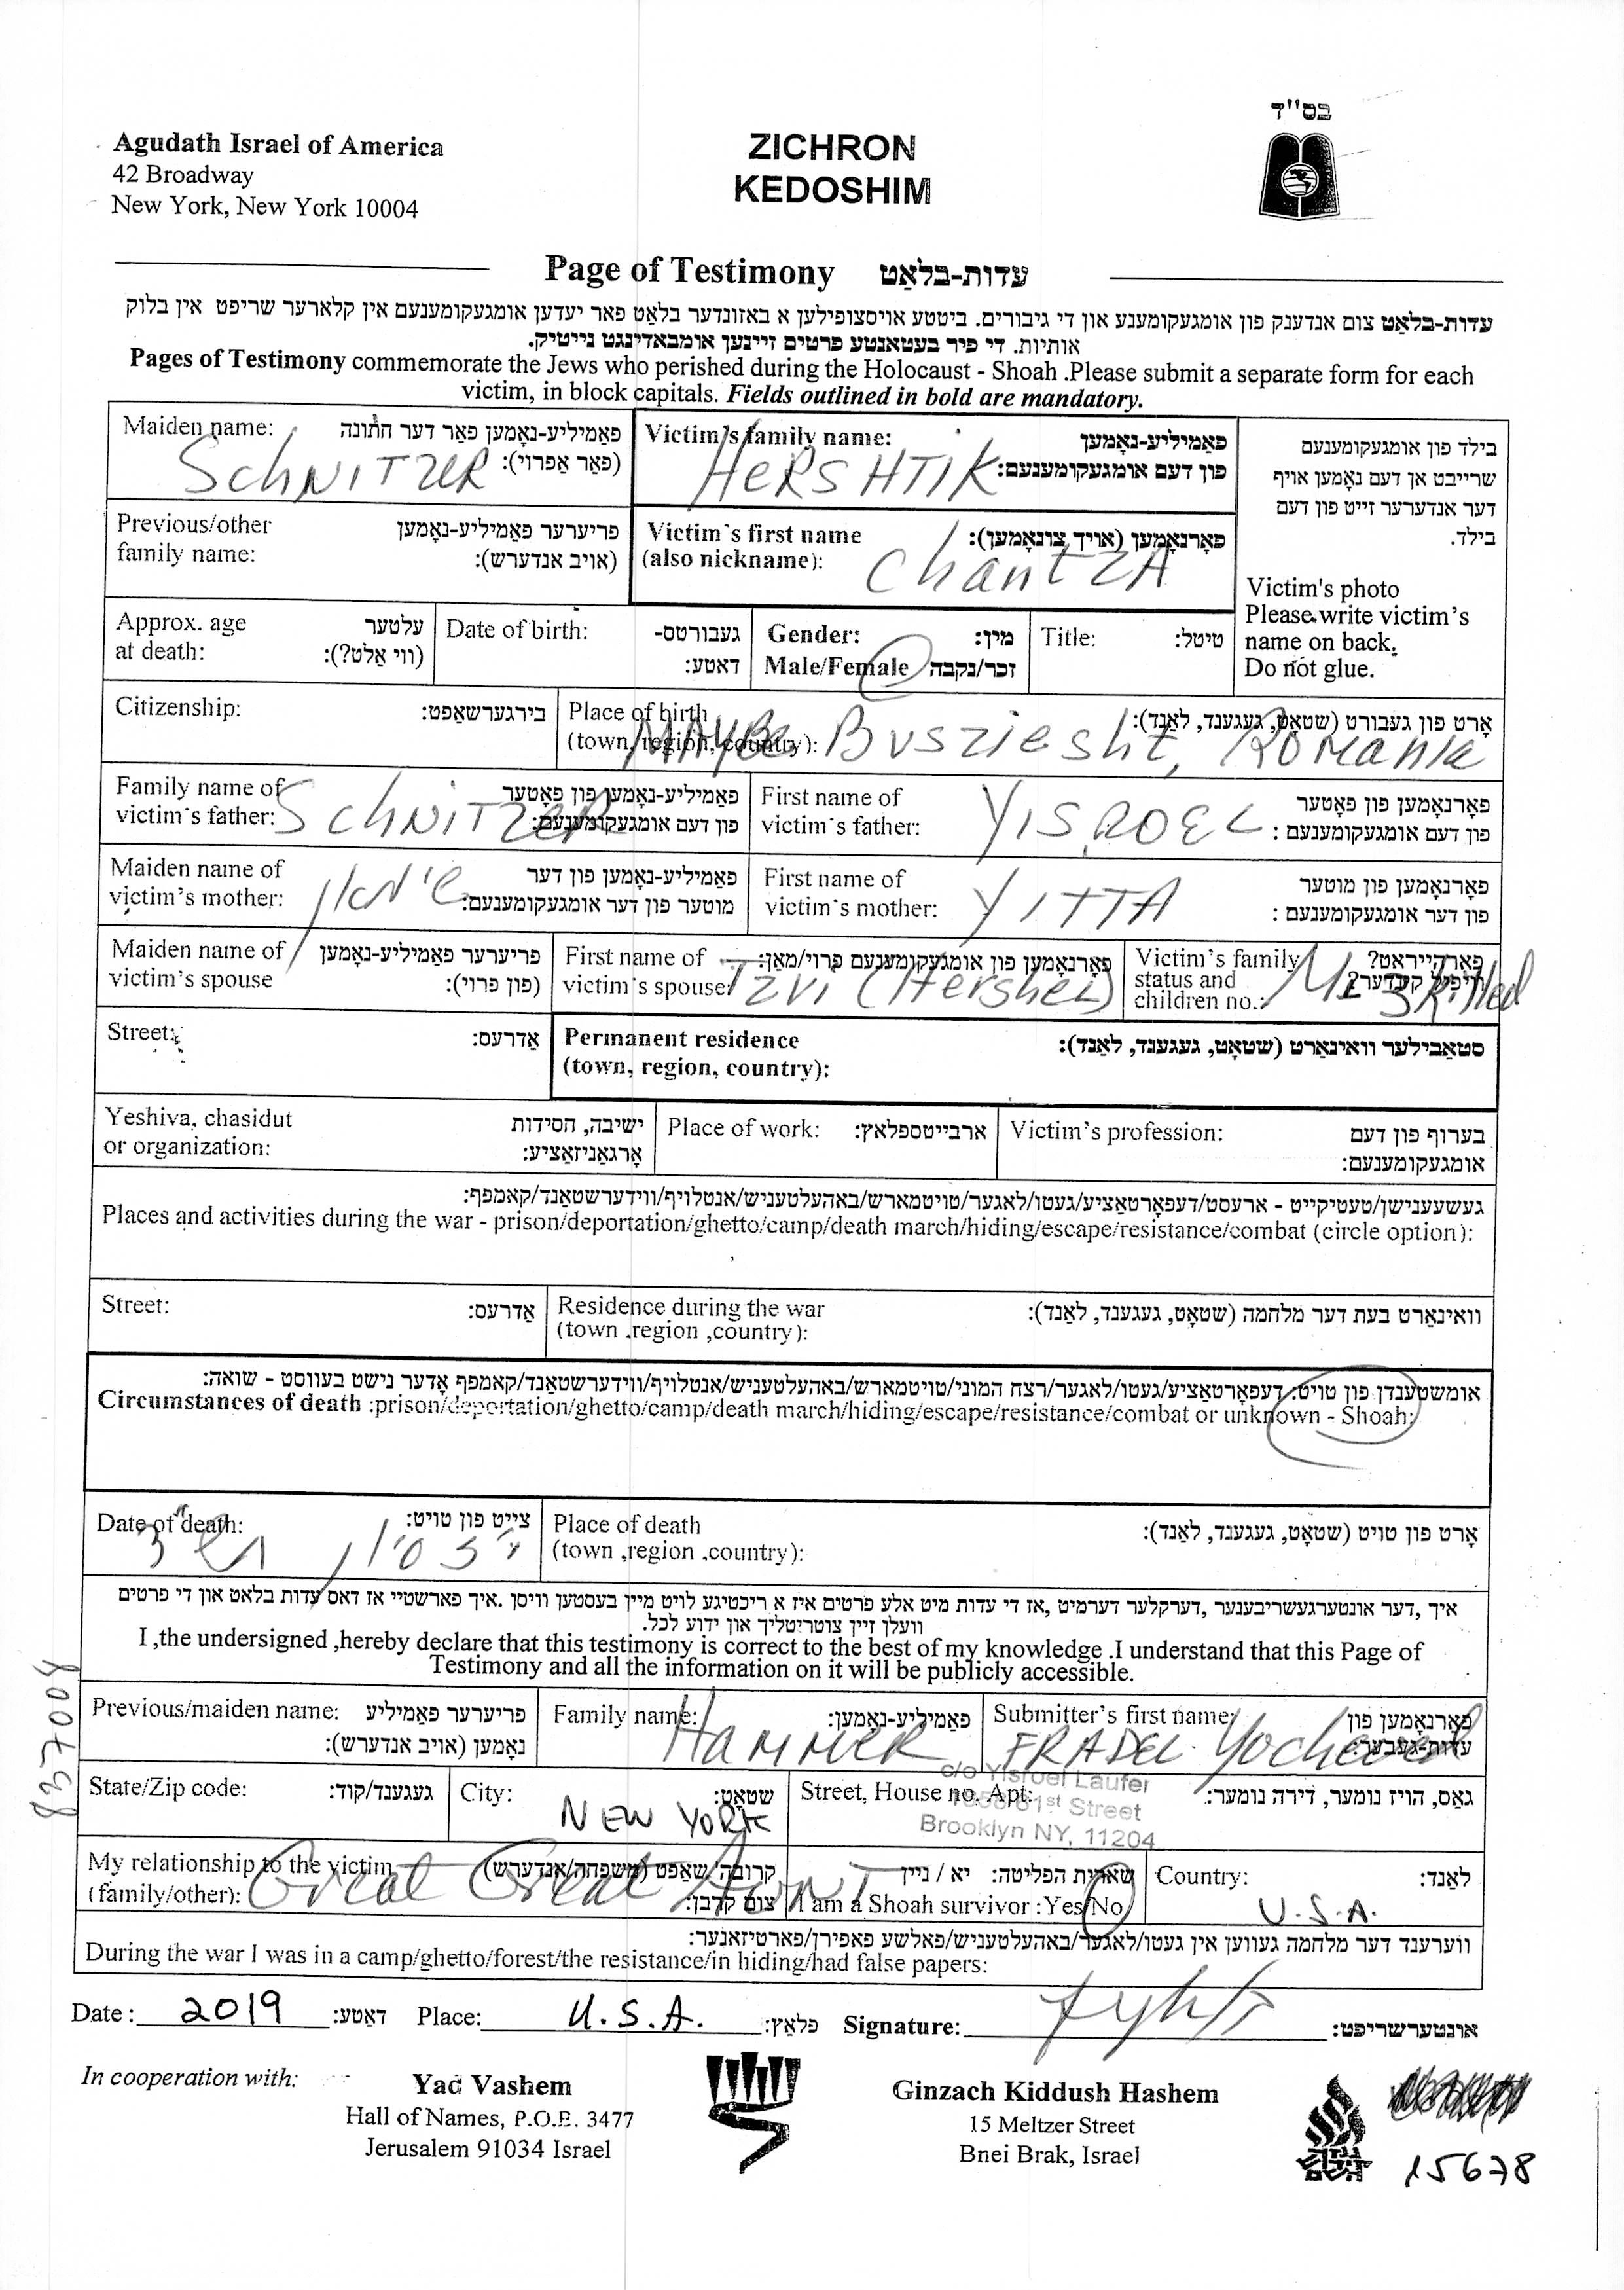 בס"ד
Agudath Israel of America
42 Broadway
New York, New York 10004
ZICHRON
KEDOSHIM
Page of Testimony עדות-בלאַט
עדות-בלאַט צום אנדענק פון אומגעקומענע און די גיבורים. ביטטע אויסצופילען א באזונדער בלאַט פאר יעדען אומגעקומענעם אין קלארער שריפט אין בלוק
אותיות. די פיר בעטאנטע פרטים זיינען אומבאדינגט נייטיק.
Pages of Testimony commemorate the Jews who perished during the Holocaust - Shoah .Please submit a separate form for each
victim, in block capitals. Fields outlined in bold are mandatory.
Maiden name: פאַמיליע-נאָמען פאַר דער חתונה
(פאַר אַפרוי):
SCHNITZER
Victim's family name: פאַמיליע-נאָמען
פון דעם אומגעקומענעם:
HERSHTIK
בילד פון אומגעקומענעם
שרייבט אן דעם נאָמען אויף
דער אנדערער זייט פון דעם
בילד.
Victim's photo
Please write victim's
name on back.
Do not glue.
Previous/other פריערער פאַמיליע-נאָמען
family name: (אויב אנדערש):
Victim's first name פאָרנאָמען (אויך צונאָמען):
(also nickname):
ChantZA
Approx. age עלטער
at death: (ווי אַלט?):
Date of birth: געבורטס-
דאטע:
Gender: מין:
Male/Female זכר/נקבה
Title: טיטל:
Citizenship: בירגערשאַפט:
Place of birth אָרט פון געבורט (שטאָט, געגענד, לאַנד):
(town, region, country):
MAYBE Busziesht, Romania
Family name of פאַמיליע-נאָמען פון פאָטער
victim's father: פון דעם אומגעקומענעם:
SCHNITZER
First name of פאָרנאָמען פון פאָטער
victim's father: פון דעם אומגעקומענעם :
YISROEL
Maiden name of פאַמיליע-נאָמען פון דער
victim's mother: מוטער פון דער אומגעקומענעם:
First name of פאָרנאָמען פון מוטער
victim's mother: פון דער אומגעקומענעם :
YITTA
Maiden name of פריערער פאַמיליע-נאָמען
victim's spouse (פון פרוי):
First name of פאָרנאָמען פון אומגעקומענעם פרוי/מאַן:
victim's spouse:
TZVI (Hershel)
Victim's family פאַרהייראַט?
status and וויפיל קינדער?
children no.:
M 3 killed
Street: אַדרעס:
Permanent residence סטאַבילער וואוינאָרט (שטאָט, געגענד, לאַנד):
(town, region, country):
Yeshiva, chasidut ישיבה, חסידות
or organization: אָרגאַניזאַציע:
Place of work: ארבייטספלאַץ:
Victim's profession: בערוף פון דעם
אומגעקומענעם:
געשעענישן/טעטיקייט - ארעסט/דעפּאָרטאַציע/געטו/לאגער/טויטמארש/באהעלטעניש/אנטלויף/ווידערשטאַנד/קאמפף:
Places and activities during the war - prison/deportation/ghetto/camp/death march/hiding/escape/resistance/combat (circle option):
Street: אַדרעס:
Residence during the war וואוינאָרט בעת דער מלחמה (שטאָט, געגענד, לאַנד):
(town .region ,country):
אומשטענדן פון טויט: דעפּאָרטאַציע/געטו/לאגער/רצח המוני/טויטמארש/באהעלטעניש/אנטלויף/ווידערשטאַנד/קאמפף אָדער נישט בעוווסט - שואה:
Circumstances of death :prison/deportation/ghetto/camp/death march/hiding/escape/resistance/combat or unknown - Shoah:
Date of death: צייט פון טויט:
Place of death אָרט פון טויט (שטאָט, געגענד, לאַנד):
(town ,region .country):
איך ,דער אונטערגעשריבענער ,דערקלער דערמיט ,אז די עדות מיט אלע פרטים איז א ריכטיגע לויט מיין בעסטען וויסן .איך פארשטיי אז דאס עדות בלאט און די פרטים
וועלן זיין צוטריטליך און ידוע לכל.
I ,the undersigned ,hereby declare that this testimony is correct to the best of my knowledge .I understand that this Page of
Testimony and all the information on it will be publicly accessible.
Previous/maiden name: פריערער פאַמיליע
נאָמען (אויב אנדערש):
Family name: פאַמיליע-נאָמען:
HAMMER
Submitter's first name: פאָרנאָמען פון
עדות-געבער:
FRADEL Yocheved
State/Zip code: געגענד/קוד:
City: שטאָט:
NEW YORK
Street, House no. Apt: גאַס, הויז נומער, דירה נומער:
c/o Yisroel Laufer
61st Street
Brooklyn NY, 11204
My relationship to the victim קרובה'שאַפט (משפחה/אנדערש)
(family/other): צום קרבן:
Great Great AUNT
שארית הפליטה: יא / ניין
I am a Shoah survivor :Yes/No
Country: לאַנד:
U.S.A.
ווערענד דער מלחמה געווען אין געטו/לאגער/באהעלטעניש/פאלשע פאפירן/פארטיזאנער:
During the war I was in a camp/ghetto/forest/the resistance/in hiding/had false papers:
Date : 2019 דאַטע: Place: U.S.A. פלאַץ: Signature: אונטערשריפט:
In cooperation with:
Yad Vashem
Hall of Names, P.O.B. 3477
Jerusalem 91034 Israel
Ginzach Kiddush Hashem
15 Meltzer Street
Bnei Brak, Israel
15678
8357008